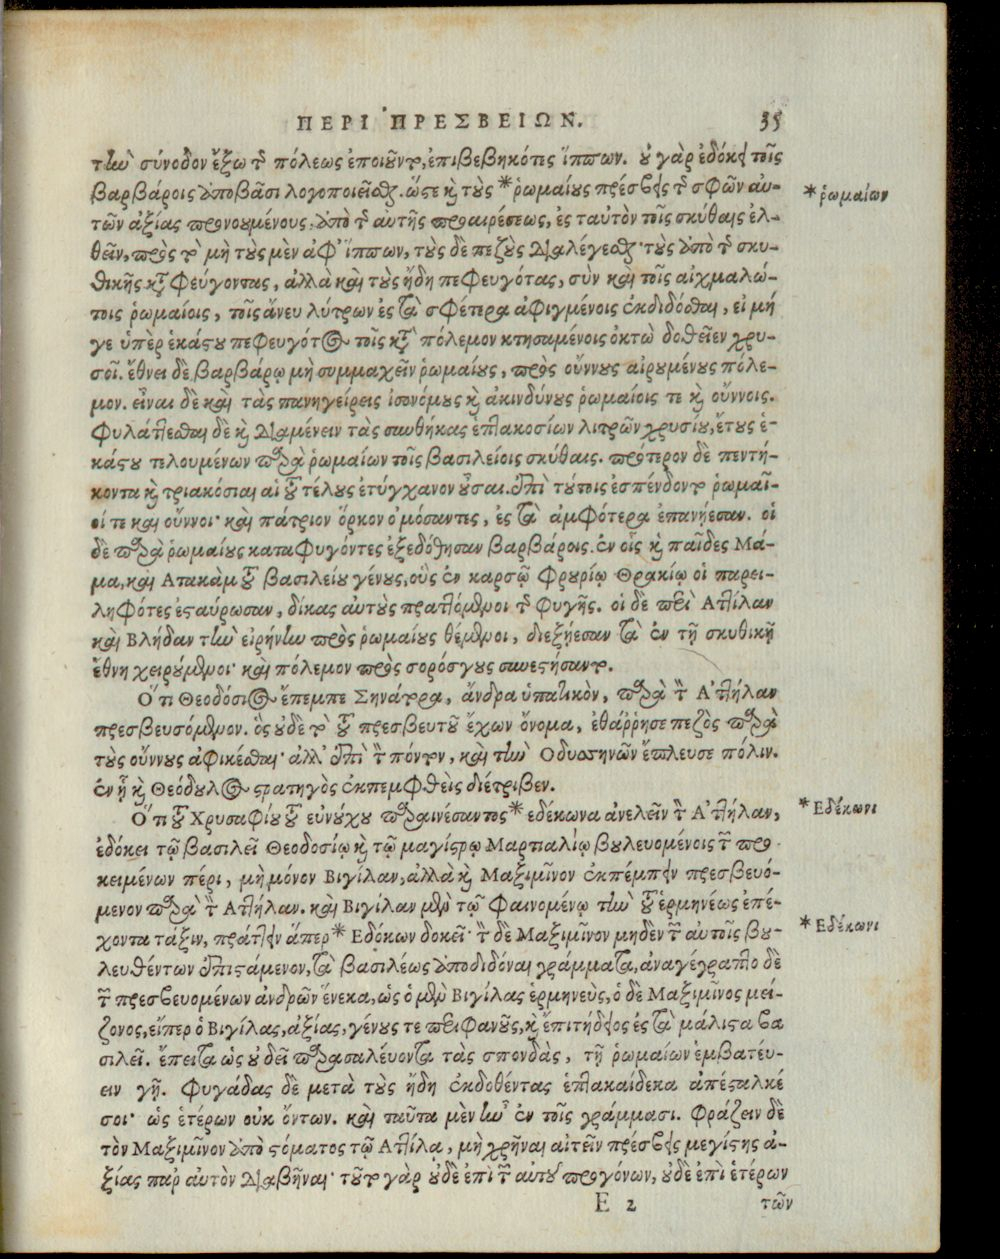 ΠΕΡΙ ΠΡΕΣΒΕΙΩΝ. 35
τὴν σύνοδον ἔξω τῆς πόλεως ἐποιοῦντο, ἐπιβεβηκότες ἵππων. οὐ γὰρ ἐδόκει τοῖς
βαρβάροις ἀποβᾶσι λογοποιεῖσθαι. ὥστε καὶ τοὺς * ῥωμαίους πρέσβεις τῆς σφῶν αὐ-
* ῥωμαίων
τῶν ἀξίας προνοουμένους, ἀπὸ τῆς αὐτῆς προαιρέσεως, ἐς ταὐτὸν τοῖς σκύθαις ἐλ-
θεῖν, πρὸς τὸ μὴ τοὺς μὲν ἀφ' ἵππων, τοὺς δὲ πεζοὺς διαλέγεσθαι· τοὺς ἀπὸ τῆς σκυ-
θικῆς καταφεύγοντας, ἀλλὰ καὶ τοὺς ἤδη πεφευγότας, σὺν καὶ τοῖς αἰχμαλώ-
τοις ῥωμαίοις, τοῖς ἄνευ λύτρων ἐς τὰ σφέτερα ἀφιγμένοις ἐκδιδόσθαι, εἰ μή
γε ὑπὲρ ἑκάστου πεφευγότος τοῖς κατὰ πόλεμον κτησαμένοις ὀκτὼ δοθεῖεν χρυ-
σοῖ. ἔθνει δὲ βαρβάρῳ μὴ συμμαχεῖν ῥωμαίους, πρὸς οὔννους αἰρουμένους πόλε-
μον. εἶναι δὲ καὶ τὰς πανηγείρεις ἰσονόμους καὶ ἀκινδύνους ῥωμαίοις τε καὶ οὔννοις.
Φυλάττεσθαι δὲ καὶ διαμένειν τὰς συνθήκας ἑπτακοσίων λιτρῶν χρυσίου, ἔτους ἑ-
κάστου τελουμένων παρὰ ῥωμαίων τοῖς βασιλείοις σκύθαις. πρότερον δὲ πεντή-
κοντα καὶ τριακόσιαι αἱ τοῦ τέλους ἐτύγχανον οὖσαι. ἐπὶ τούτοις ἐσπένδοντο ῥωμαῖ-
οί τε καὶ οὔννοι· καὶ πάτριον ὅρκον ὀμόσαντες, ἐς τὰ ἀμφότερα ἐπανῄεσαν. οἱ
δὲ παρὰ ῥωμαίους καταφυγόντες ἐξεδόθησαν βαρβάροις. ἐν οἷς καὶ παῖδες Μά-
μα, καὶ Ατακὰμ τοῦ βασιλείου γένους, οὓς ἐν καρσῷ φρουρίῳ Θρακίῳ οἱ παρει-
ληφότες ἐσταύρωσαν, δίκας αὐτοὺς πραττόμενοι τῆς φυγῆς. οἱ δὲ περὶ Αττίλαν
καὶ Βλήδαν τὴν εἰρήνην πρὸς ῥωμαίους θέμενοι, διεξῄεσαν τὰ ἐν τῇ σκυθικῇ
ἔθνη χειρούμενοι· καὶ πόλεμον πρὸς σορόσγους συνεστήσαντο.
Ὅτι Θεοδόσιος ἔπεμπε Σηνάτορα, ἄνδρα ὑπατικὸν, παρὰ τὸν Ἀττήλαν
πρεσβευσόμενον. ὃς οὐδὲ τὸ τοῦ πρεσβευτοῦ ἔχων ὄνομα, ἐθάῤῥησε πεζὸς παρὰ
τοὺς οὔννους ἀφικέσθαι· ἀλλ' ἐπὶ τὸν πόντον, καὶ τὴν Οδυσσηνῶν ἔπλευσε πόλιν.
ἐν ᾗ καὶ Θεόδουλος στρατηγὸς ἐκπεμφθεὶς διέτριβεν.
Ὅτι τοῦ Χρυσαφίου τοῦ εὐνούχου παραινέσαντος * εδέκωνα ἀνελεῖν τὸν Ἀττήλαν,
* Εδέκωνι
ἐδόκει τῷ βασιλεῖ Θεοδοσίῳ καὶ τῷ μαγίστρῳ Μαρτιαλίῳ βουλευομένοις τῶν προ-
κειμένων πέρι, μὴ μόνον Βιγίλαν, ἀλλὰ καὶ Μαξιμῖνον ἐκπέμπειν πρεσβευό-
μενον παρὰ τὸν Αττήλαν. καὶ Βιγίλαν μὲν τῷ φαινομένῳ τὴν τοῦ ἑρμηνέως ἐπέ-
χοντα τάξιν, πράττειν ἅπερ * Εδόκων δοκεῖ· τὸν δὲ Μαξιμῖνον μηδὲν τῶν αὐτοῖς βου-
* Εδέκωνι
λευθέντων ἐπιστάμενον, τὰ βασιλέως ἀποδιδόναι γράμματα, ἀναγέγραπτο δὲ
τῶν πρεσβευομένων ἀνδρῶν ἕνεκα, ὡς ὁ μὲν Βιγίλας ἑρμηνεὺς, ὁ δὲ Μαξιμῖνος μεί-
ζονος, εἴπερ ὁ Βιγίλας, ἀξίας, γένους τε περιφανοῦς, καὶ ἐπιτήδειος ἐς τὰ μάλιστα βα
σιλεῖ. ἔπειτα ὡς οὐ δεῖ παρασαλεύοντα τὰς σπονδὰς, τῇ ῥωμαίων ἐμβατεύ-
ειν γῇ. Φυγάδας δὲ μετὰ τοὺς ἤδη ἐκδοθέντας ἑπτακαίδεκα ἀπέσταλκέ
σοι· ὡς ἑτέρων οὐκ ὄντων. καὶ ταῦτα μὲν ἦν ἐν τοῖς γράμμασι. Φράζειν δὲ
τὸν Μαξιμῖνον ἀπὸ στόματος τῷ Αττίλα, μὴ χρῆναι αἰτεῖν πρέσβεις μεγίστης ἀ-
ξίας παρ' αὐτὸν διαβῆναι· τοῦτο γὰρ οὐδὲ ἐπὶ τῶν αὐτοῦ προγόνων, οὐδὲ ἐπὶ ἑτέρων
E 2 τῶν